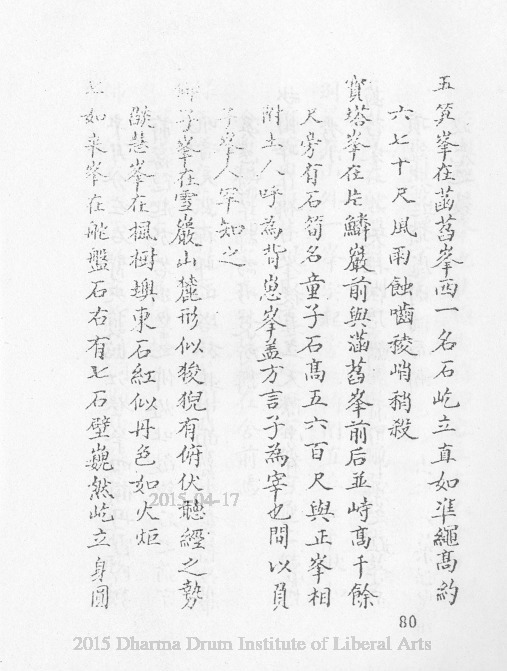 五筭峯在菡萏峯西一名石屹立直如準繩高約
六七十尺風雨蝕嚙稜峭稍殺
寳塔峯在片鱗巖前與菡萏峯前后並峙高千餘
尺旁有石筍名童子石高五六百尺與正峯相
附土人呼為背崽峯盖方言子為宰也問以員
子峯人罕知之
峯在雪巖山麓形似狻猊有俯伏聽經之勢
燄慧峯在楓樹墺東石紅似丹色如火炬
如來峯在舵盤石右有七石壁巍然屹立身圓
80
2015-04-17
2015 Dharma Drum Institute of Liberal Arts